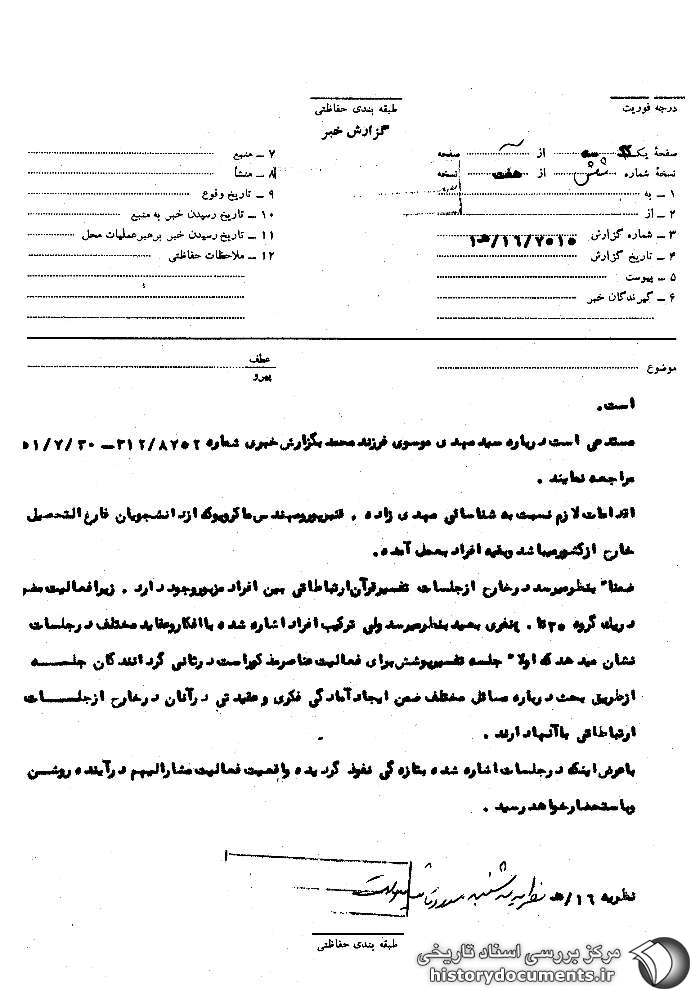 طبقه بندی حفاظتی
درجه فوریت
گزارش خبر
صفحهٔ یک سه از صفحه
نسخهٔ شماره شش از هفت نسخه
۱ ـ به
۲ ـ از
۳ ـ شماره گزارش ۷۰۱۰/۱۶/ه‍۱
۴ ـ تاریخ گزارش
۵ ـ پیوست
۶ ـ گیرندگان خبر
۷ ـ منبع
۸ ـ منشأ
۹ ـ تاریخ وقوع
۱۰ ـ تاریخ رسیدن خبر به منبع
۱۱ ـ تاریخ رسیدن خبر برهبرعملیات محل
۱۲ ـ ملاحظات حفاظتی
موضوع
عطف
پیرو
است.
مستدعی است درباره سید مهدی موسوی فرزند محمد بگزارش خبری شماره ۳۱۲/۸۷۵۲ ـ ۵۱/۷/۳۰
مراجعه نمایند .
اقدامات لازم نسبت به شناسائی مهدی زاده ، قنبرپور ومهندس ماکروبوکه از دانشجویان فارغ التحصیل
خارج ازکشور میباشد وبقیه افراد بعمل آمده .
ضمنا" بنظر میرسد درخارج ازجلسات تفسیرقرآن ارتباطاتی بین افراد مزبور وجود دارد . زیرا فعالیت مضر
در یک گروه ۳۰ تا نفری بعید بنظر میرسد ولی ترکیب افراد اشاره شده با افکار وعقاید مختلف در جلسات
نشان میدهد که اولا" جلسه تفسیر پوشش برای فعالیت عناصر مذکور است درثانی گردانندگان جلسه
ازطریق بحث درباره مسائل مختلف ضمن ایجاد آمادگی فکری و عقیدتی درآنان درخارج ازجلسات
ارتباطاتی باآنها دارند .
باعرض اینکه درجلسات اشاره شده بتازه گی نفوذ گردیده واقعیت فعالیت مشارالیهم درآینده روشن
وباستحضار خواهد رسید .
نظریه ۱۶/ه‍ نظریه سه شنبه مورد تائید است
طبقه بندی حفاظتی
مرکز بررسی اسناد تاریخی
historydocuments.ir